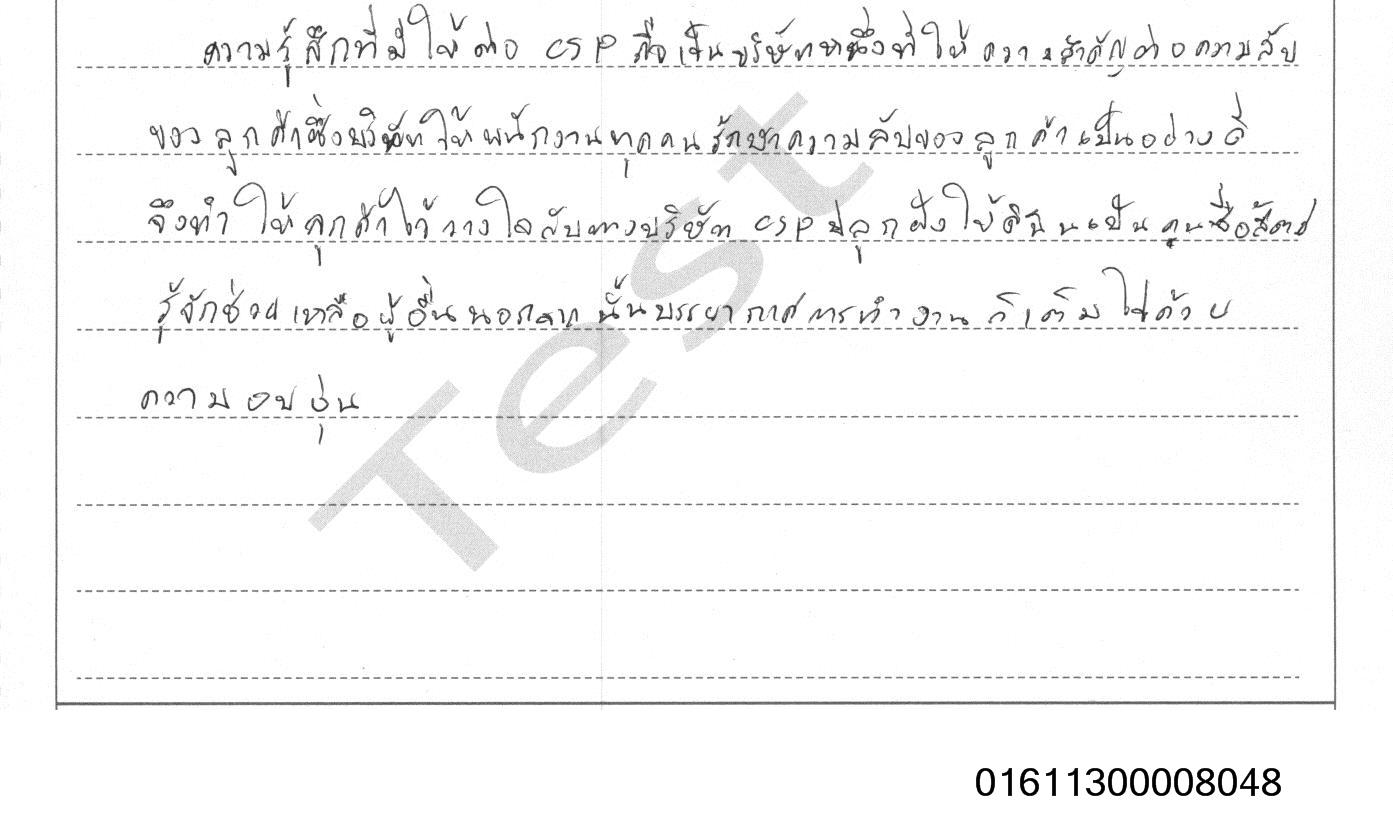 ความรู้สึกที่มีให้ต่อ CSP คือเป็นบริษัทหนึ่งที่ให้ความสำคัญต่อความลับ
ของลูกค้าซึ่งบริษัทให้พนักงานทุกคนรักษาความลับของลูกค้าเป็นอย่างดี
จึงทำให้ลูกค้าไว้วางใจกับทางบริษัท CSP ปลูกฝังให้ดิฉันเป็นคนซื่อสัตย์
รู้จักช่วยเหลือผู้อื่นนอกจากนั้นบรรยากาศการทำงานก็เต็มไปด้วย
ความอบอุ่น
Test
01611300008048